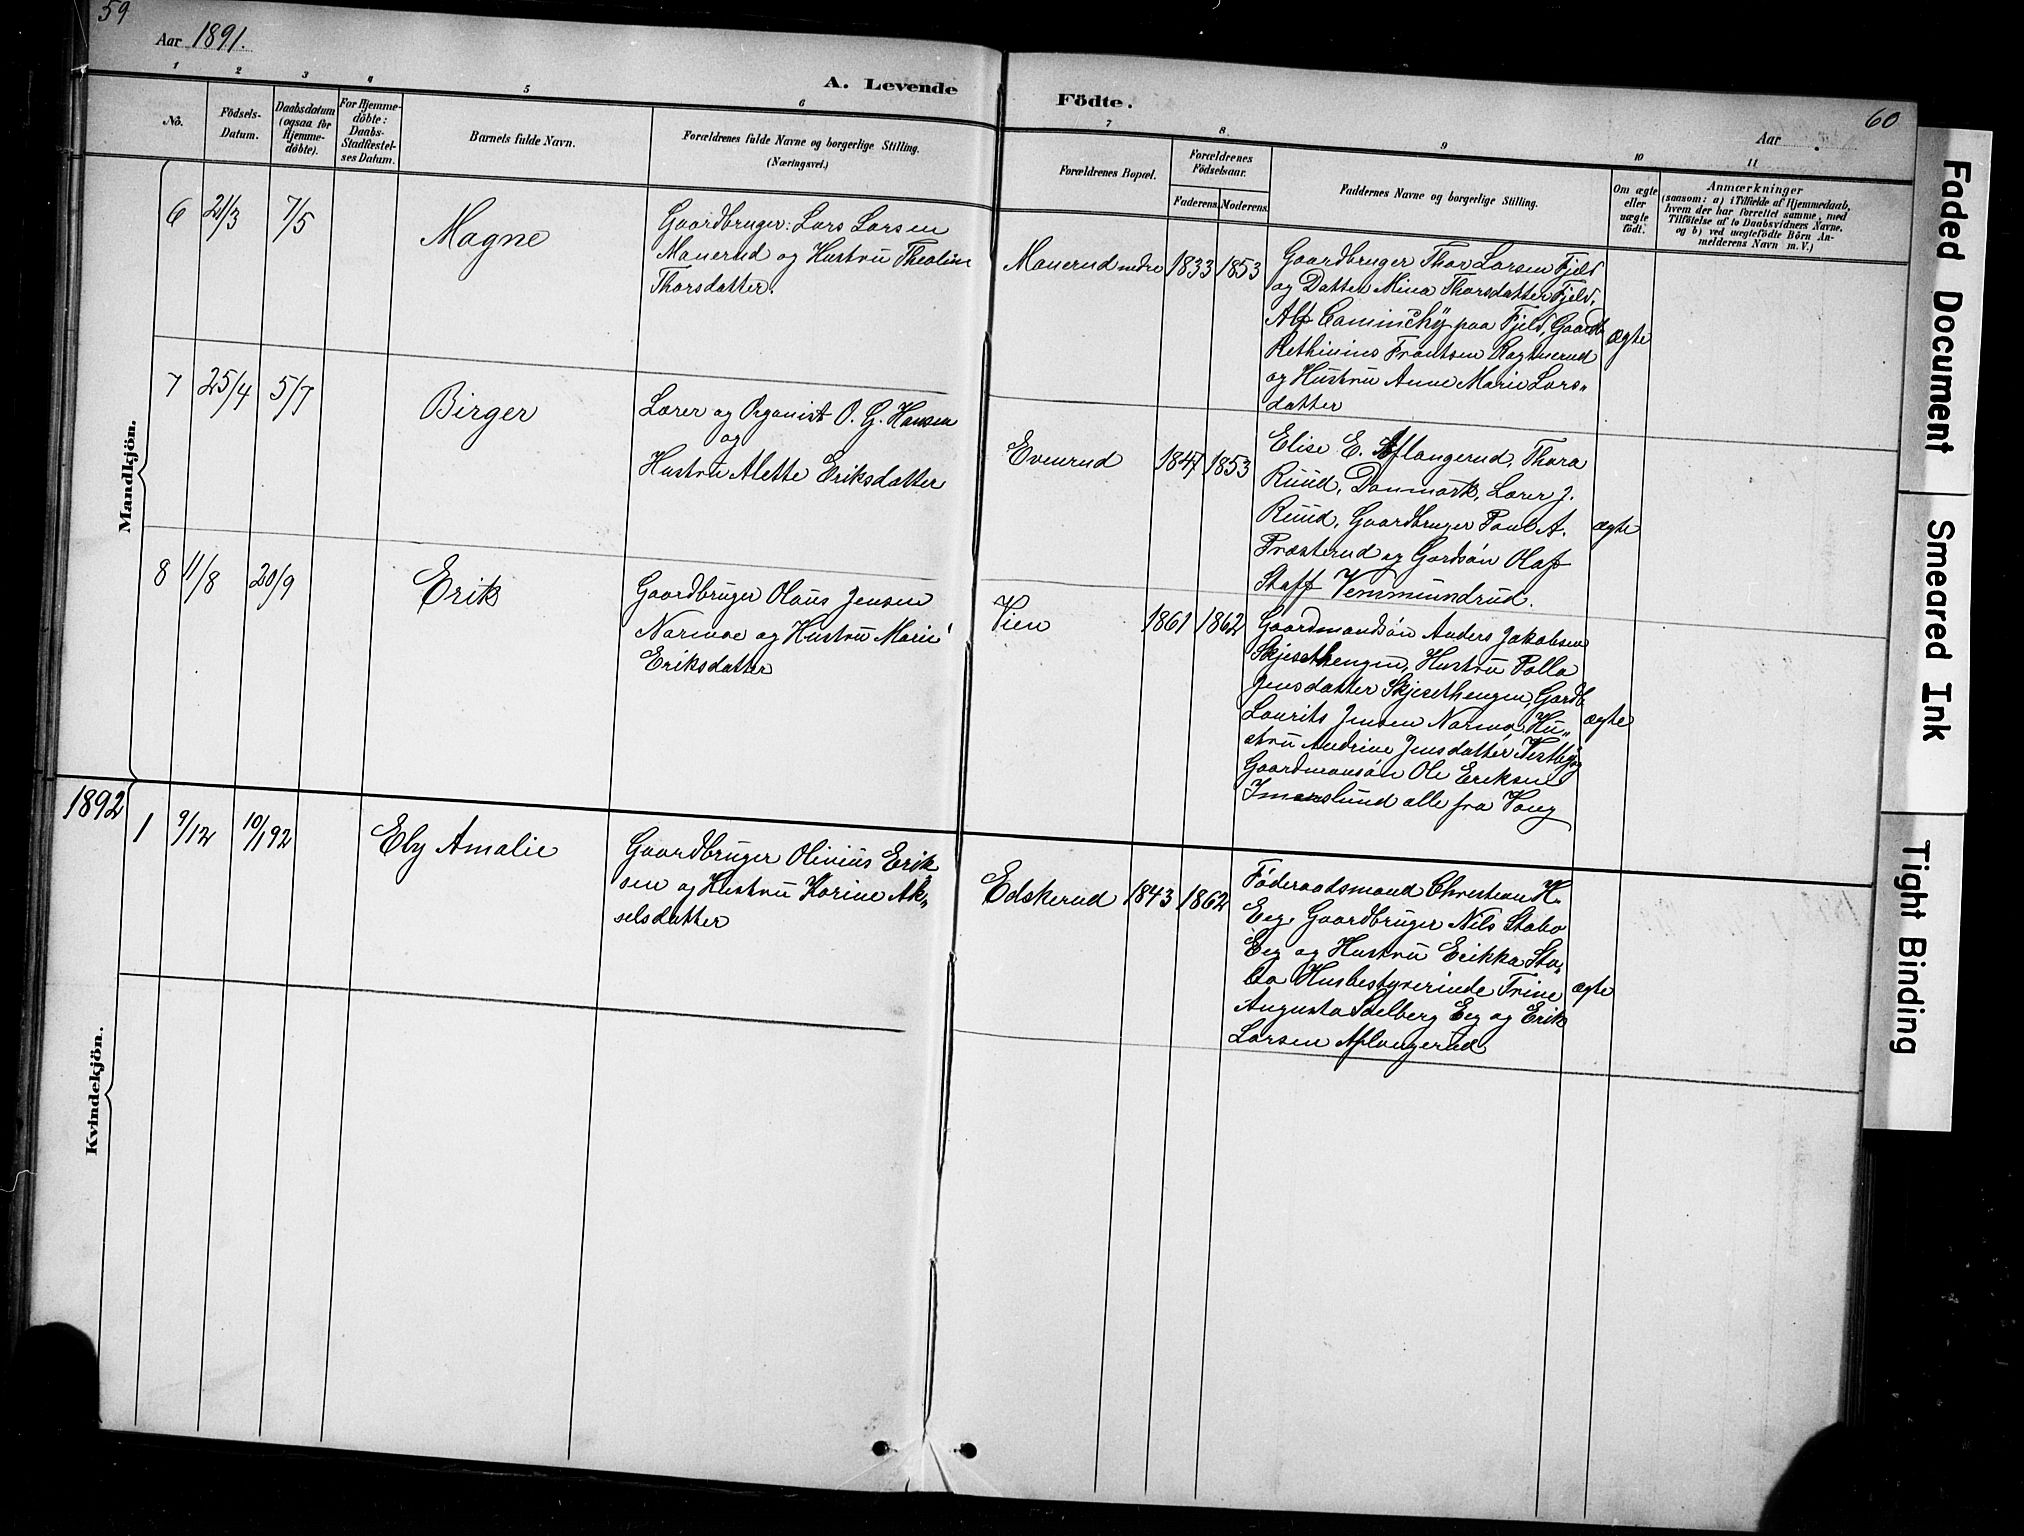 59
Aar 1891.
A. Levende
Födte.
Aar
60
1 2 3 4 5 6 7 8 9 10 11
No.
Födsels-
Datum.
Daabsdatum
(ogsaa for
Hjemme-
döbte).
For Hjemme-
döbte:
Daabs-
Stadfæstel-
ses Datum.
Barnets fulde Navn.
Forældrenes fulde Navne og borgerlige Stilling.
(Næringsvei.)
Forældrenes Bopæl.
Forældrenes
Födselsaar.
Faderens. Moderens.
Faddernes Navne og borgerlige Stilling.
Om ægte
eller
uægte
födt.
Anmærkninger
(saasom: a) i Tilfælde af Hjemmedaab,
hvem der har forrettet samme, med
Tilföielse af to Daabsvidners Navne,
og b) ved uægtefödte Börn An-
melderens Navn m. V.)
Mandkjön.
6 21/3 7/5
Magne
Gaardbruger: Lars Larsen
Mauerud og Hustru Theoline
Thorsdatter.
Mauerud nedre 1833 1853
Gaardbruger Thor Larsen Fjeld
og Datter Mina Thorsdatter Fjeld,
Alf paa Fjeld, Gaardb
Rethinius Frantsen Ragnerud
og Hustru Anne Marie Lars-
datter
ægte
7 25/4 5/7
Birger
Lærer og Organist O. G. Hansen
og
Hustru Alette Eriksdatter
Evenrud 1847 1853
Elise E. Aflangerud, Thora
Ruud, Danmark, Lærer J.
Ruud, Gaardbruger Paul A.
Præsterud og Gardsøn Olaf
Staff Vemmundrud.
ægte
8 11/8 20/9
Erik
Gaardbruger Olaus Jensen
Narmoe og Hustru Marie
Eriksdatter
Vien 1861 1862
Gaardmandsøn Anders Jakobsen
Skjesethengen, Hustru Polla
Jensdatter Skjesethengen, Gardb
Laurits Jensen Narmo, Hu-
stru Andrine Jensdatter Vestby og
Gaardmansøn Ole Eriksen
Imerslund alle fra Vang
ægte
1892
Kvindekjön.
1 9/12 10/1 92
Eby Amalie
Gaardbruger Olivius Erik
sen og Hustru Karine Ak-
selsdatter
Edskerud 1843 1862
Föderaadsmand Christian H.
Eeg, Gaardbruger Nils Stabo
Eeg og Hustru Erikka Sta-
bo Husbestyrerinde Trine
Augusta Solberg Eeg og Erik
Larsen Aflangerud
ægte
Faded Document
Smeared Ink
Tight Binding